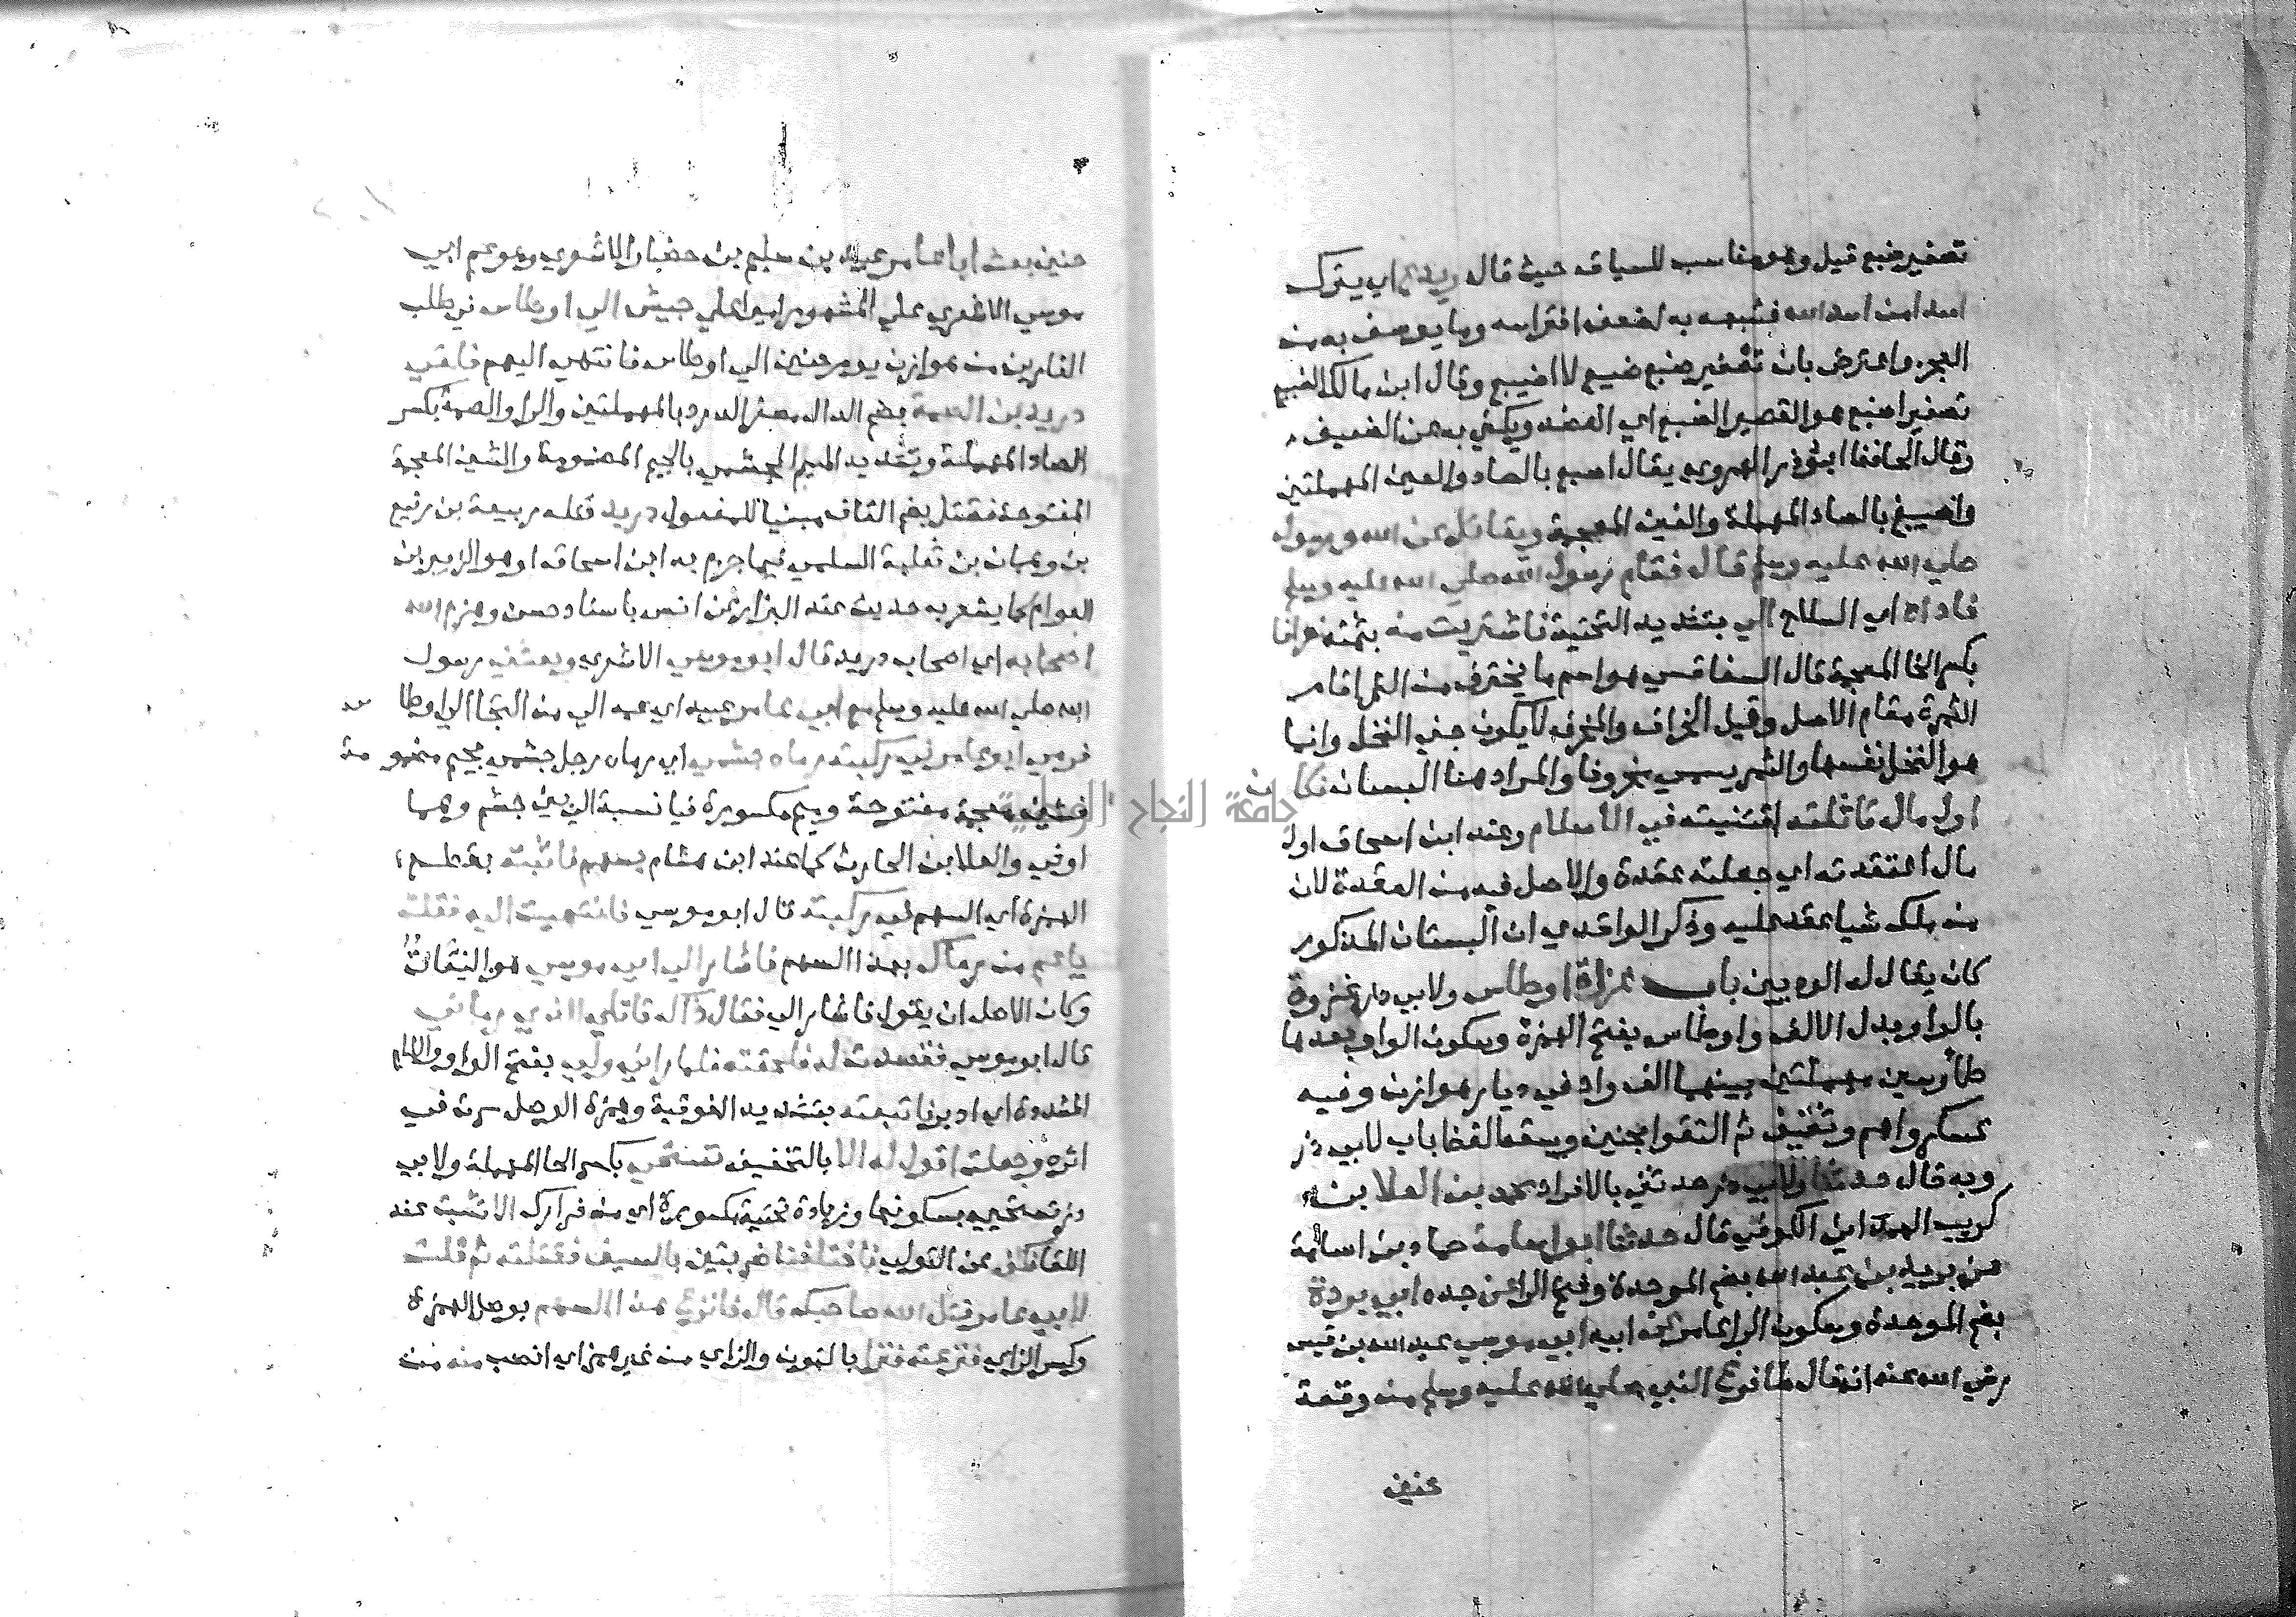 تصغير ضبع قيل وهو مناسب للسياق حيث قال ويدع اي يترك
اسدا من اسد الله فشبهه به لضعف افتراسه وما يوصف به من
العجز واعترض بان تصغير ضبع ضبيع لا اضيبع وقال ابن مالك اضيبع
تصغير اضبع هو القصير الضبع اي العضد ويكني به عن الضعيف
وقال الحافظ ابو ذر الهروي يقال اصبع بالصاد والعين المهملتين
واصيبغ بالصاد المهملة والغين المعجمة ويقاتل عن الله ورسوله
صلي الله عليه وسلم قال فقام رسول الله صلي الله عليه وسلم
فاداه اي السلاح الي بتشديد التحتية فاشتريت منه بثمنه خرافا
بكسر الخا المعجمة قال السفاقسي هو اسم ما يخترف من الثمر اقام
الثمرة مقام الاصل وقيل الخراف والمخرف لا يكون جني النخل وانما
هو النخل نفسها والثمر يسمي مخروفا والمراد هنا البستان فكان
اول مال تاثلته اقتنيته في الاسلام وعند ابن اسحاق اول
مال اعتقدته اي جعلته عقدة والاصل فيه من العقدة لان
من ملك شيا عقد عليه وذكر الواقدي ان البستان المذكور
كان يقال له الوديين باب غزاة اوطاس ولابي ذر غزوة
بالواو بدل الالف واوطاس بفتح الهمزة وسكون الواو بعدها
طا وسين مهملتين بينهما الف واد في ديار هوازن وفيه
عسكروا هم وثقيف ثم التقوا بحنين وسقط لفظ باب لابي ذر
وبه قال حدثنا ولابي ذر حدثني بالافراد محمد بن العلا بن
كريب الهمداني الكوفي قال حدثنا ابو اسامة حماد بن اسامة
عن بريد بن عبد الله بضم الموحدة وفتح الرا عن جده ابي بردة
بضم الموحدة وسكون الرا عامر عن ابيه ابي موسي عبد الله بن قيس
رضي الله عنه انه قال لما فرغ النبي صلي الله عليه وسلم من وقعة
حنين
حنين بعث ابا عامر عبيد بن سليم بن حضار الاشعري وهو عم ابي
موسي الاشعري علي المشهور اميرا علي جيش الي اوطاس في طلب
الفارين من هوازن يوم حنين الي اوطاس فانتهي اليهم فلقي
دريد بن الصمة بضم الدال مصغر الدرد بالمهملتين والرا والصمة بكسر
الصاد المهملة وتشديد الميم الجشمي بالجيم المضمومة والشين المعجمة
المفتوحة فقتل بضم القاف مبنيا للمفعول دريد قتله ربيعة بن رفيع
بن وهبان بن ثعلبة السلمي فيما جزم به ابن اسحاق او هو الزبير بن
العوام كما يشعر به حديث عند البزار عن انس باسناد حسن وهزم الله
اصحابه اي اصحاب دريد قال ابو موسي الاشعري وبعثني رسول
الله صلي الله عليه وسلم مع ابي عامر عبيد اي عمه الي من التجا الي اوطاس
فرمي ابو عامر في ركبته رماه جشمي اي رماه رجل جشمي بجيم مضمومة
فشين معجمة مفتوحة وميم مكسورة فيا نسبة الي بني جشم وهما
اوفي والعلا ابن الحارث كما عند ابن هشام بسهم فاثبته بقطع
الهمزة اي السهم في ركبته قال ابو موسي فانتهيت اليه فقلت
يا عم من رماك بهذا السهم فاشار الي ابي موسي هو التفات
وكان الاصل ان يقول فاشار الي فقال ذاك قاتلي الذي رماني
قال ابو موسي فقصدت له فلحقته فلما راني ولي بفتح الواو واللام
المشددة اي ادبر فاتبعته بتشديد الفوقية وهمزة الوصل سرت في
اثره وجعلت اقول له الا بالتخفيف تستحي بكسر الحا المهملة ولابي
ذر تستحيي بسكونها وزيادة تحتية مكسورة اي من فرارك الا تثبت عند
اللقا فكف عن التولي فاختلفنا ضربتين بالسيف فقتلته ثم قلت
لابي عامر قتل الله صاحبك قال فانزع هذا السهم بوصل الهمزة
وكسر الزاي فنزعته فنزا بالنون والزاي من غير همز اي انصب منه من